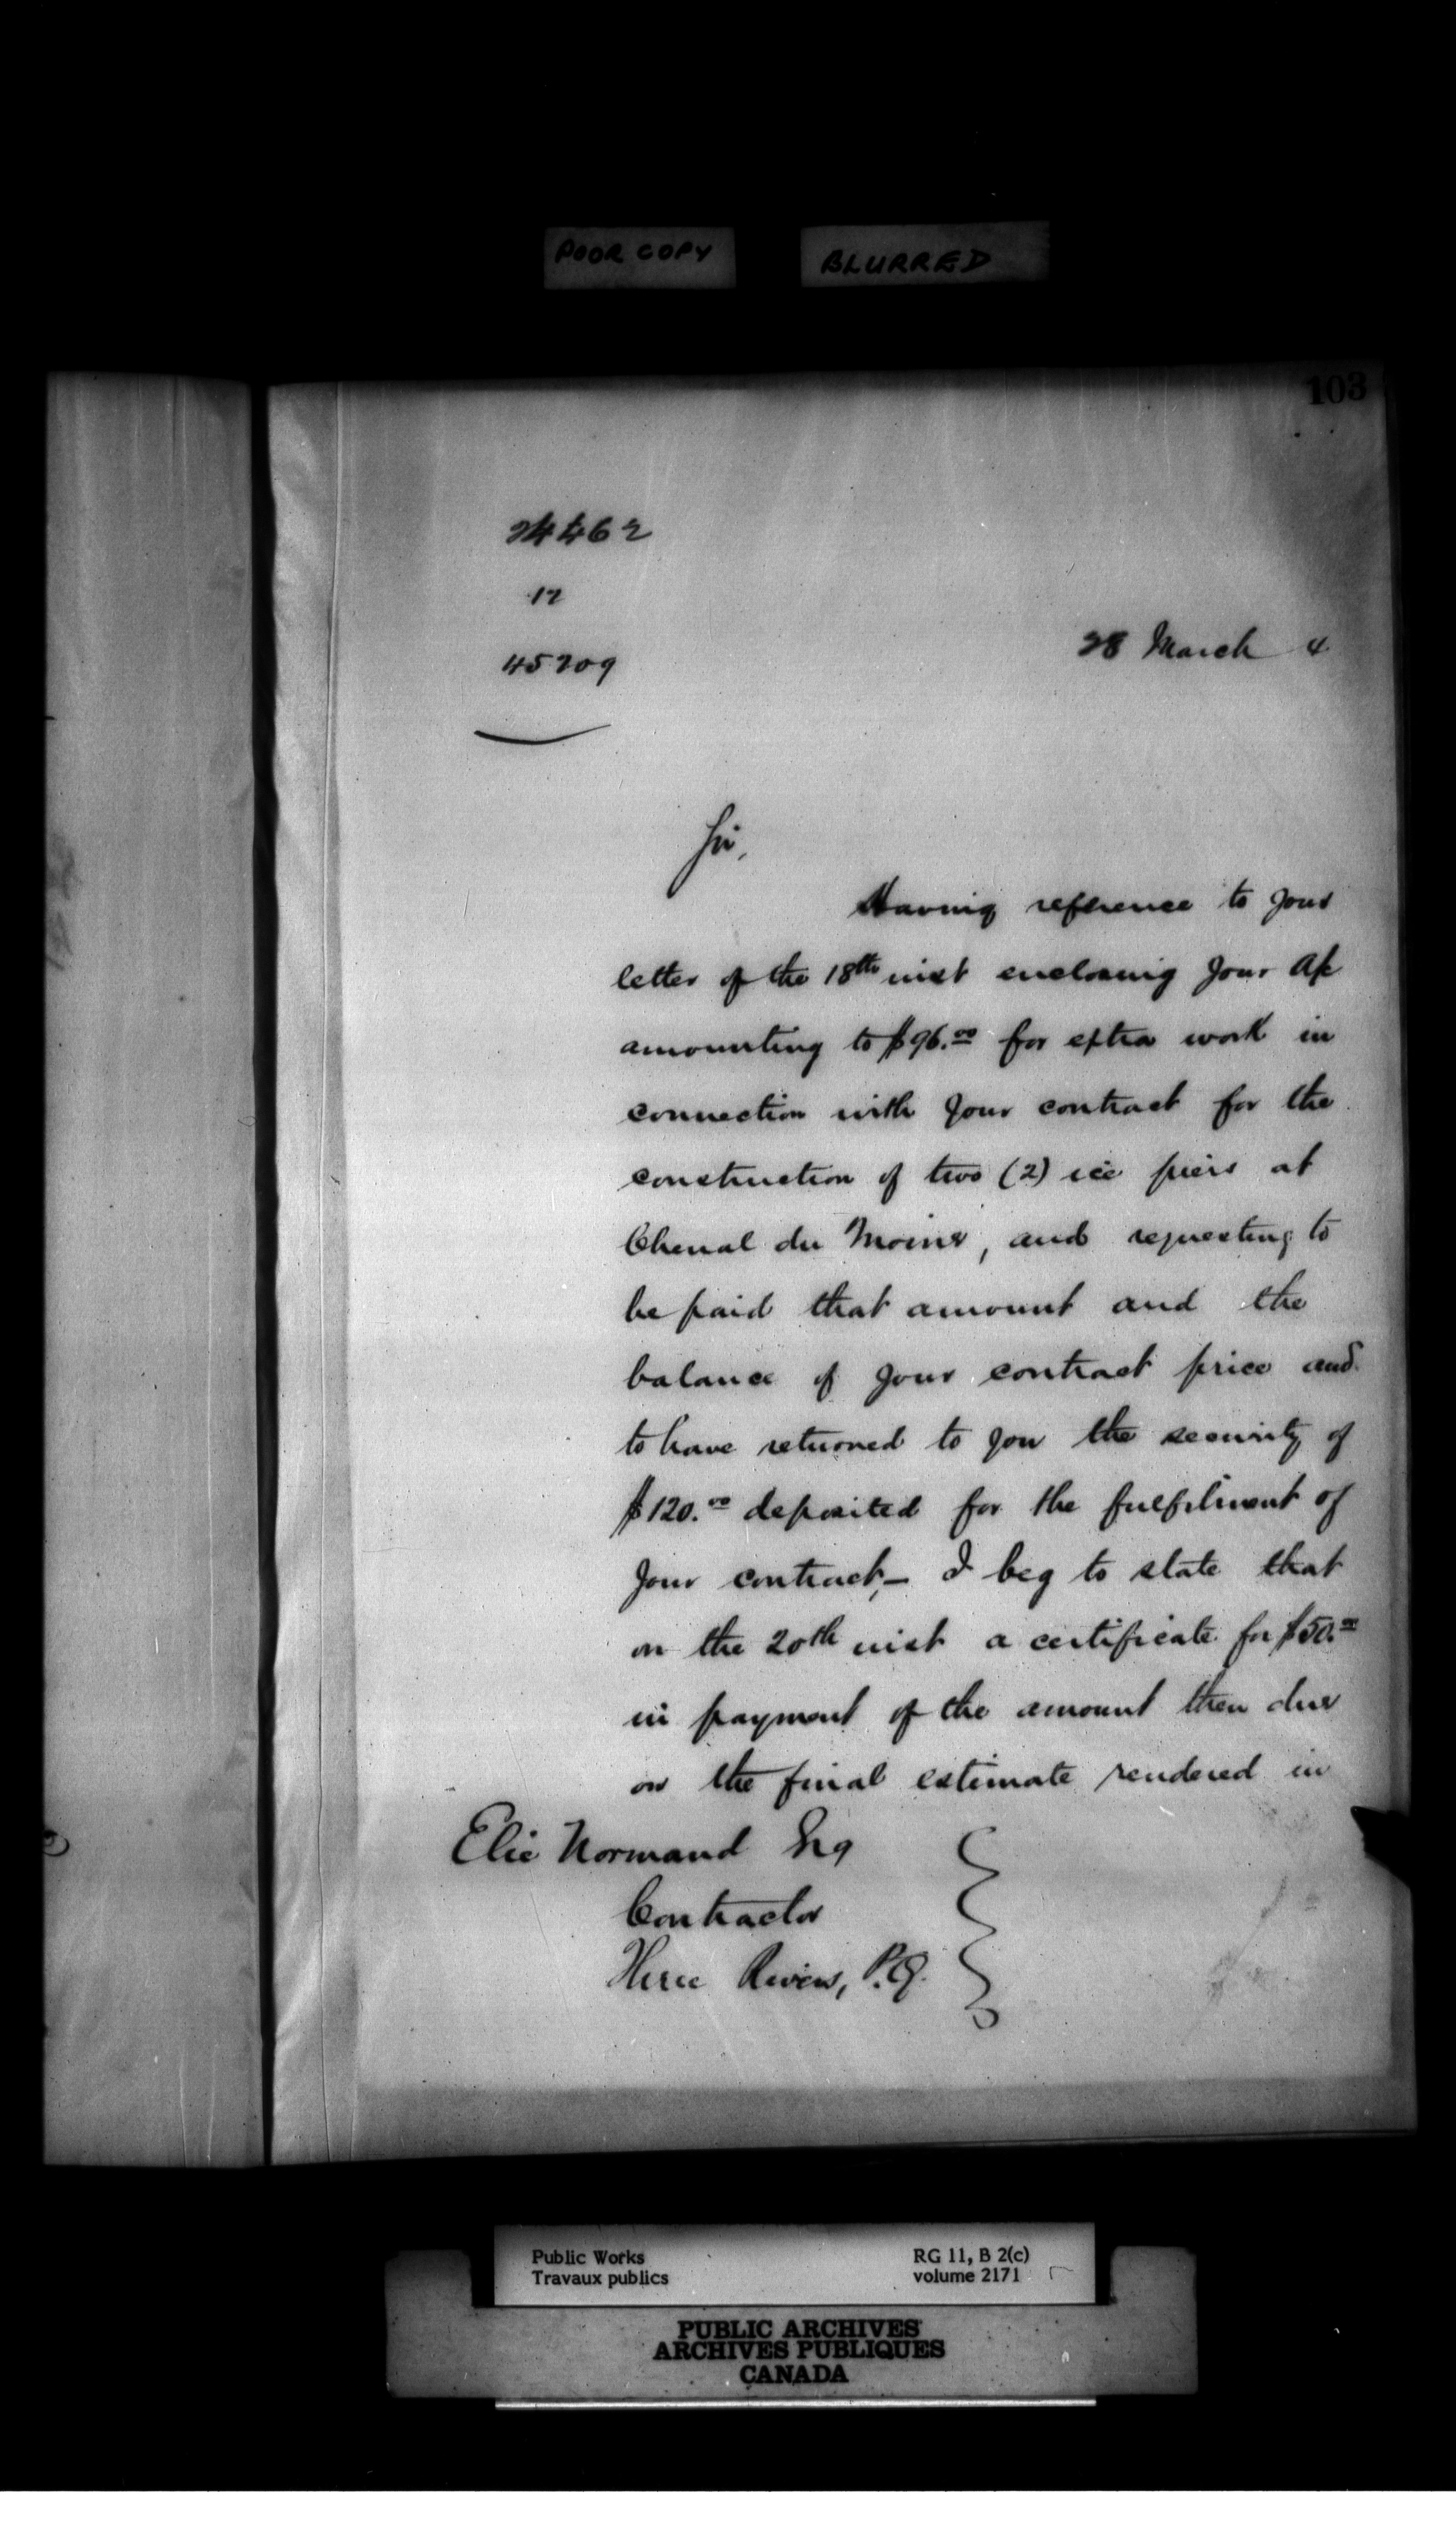 POOR COPY BLURRED
103
24462
12
45209
28 March 4
Sir,
Having reference to your
letter of the 18th inst enclosing your a/c
amounting to $96.00 for extra work in
connection with your contract for the
construction of two (2) ice piers at
Chenal du Moine, and requesting to
be paid that amount and the
balance of your contract price and
to have returned to you the security of
$120.00 deposited for the fulfilment of
your contract,— I beg to state that
on the 20th inst a certificate for $50.00
in payment of the amount then due
on the final estimate rendered in
Elie Normand Esq
Contractor
Three Rivers, P.Q.
Public Works RG 11, B 2(c)
Travaux publics volume 2171
PUBLIC ARCHIVES
ARCHIVES PUBLIQUES
CANADA